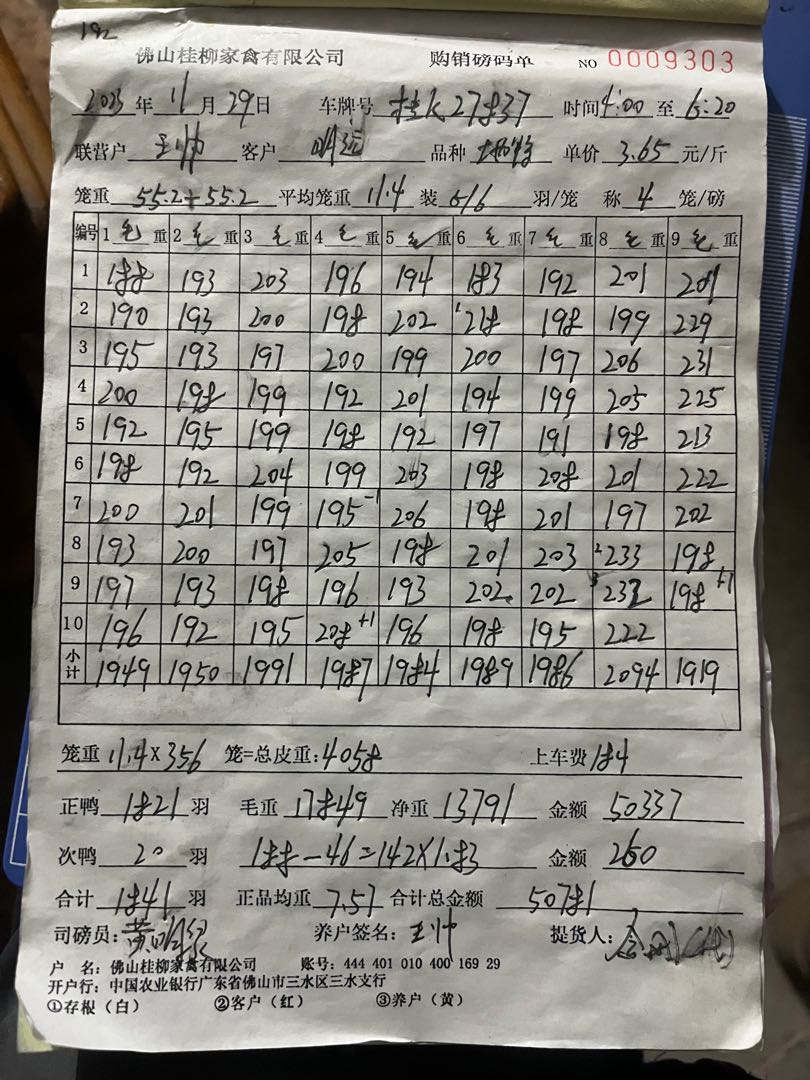 192
佛山桂柳家禽有限公司 购销磅码单 NO 0009303
2023年 11月29日 车牌号 桂K27837 时间4:00至6:20
联营户 王帅 客户 明远 品种 单价 3.65 元/斤
笼重 55.2+55.2 平均笼重 11.4 装 5/6 羽/笼 称 4 笼/磅
编号 1 毛 重 2 毛 重 3 毛 重 4 毛 重 5 毛 重 6 毛 重 7 毛 重 8 毛 重 9 毛 重
1 188 193 203 196 194 183 192 201 201
2 190 193 200 198 202 218 198 199 229
3 195 193 197 200 199 200 197 206 231
4 200 198 199 192 201 194 199 205 225
5 192 195 199 198 192 197 191 198 213
6 198 192 204 199 203 198 208 201 222
7 200 201 199 195 -1 206 198 201 197 202
8 193 200 197 205 198 201 203 2 233 198
9 197 193 198 196 193 202 202 3 232 198 +1
10 196 192 195 208 +1 196 198 195 222
小计 1949 1950 1991 1987 1984 1989 1986 2094 1919
笼重 11.4×356 笼=总皮重:4058 上车费 184
正鸭 1821 羽 毛重 17849 净重 13791 金额 50337
次鸭 20 羽 188-46=142×1.83 金额 260
合计 1841 羽 正品均重 7.57 合计总金额 50781
司磅员:黄明银 养户签名:王帅 提货人:
户 名:佛山桂柳家禽有限公司 账号:444 401 010 400 169 29
开户行:中国农业银行广东省佛山市三水区三水支行
①存根(白) ②客户(红) ③养户(黄)